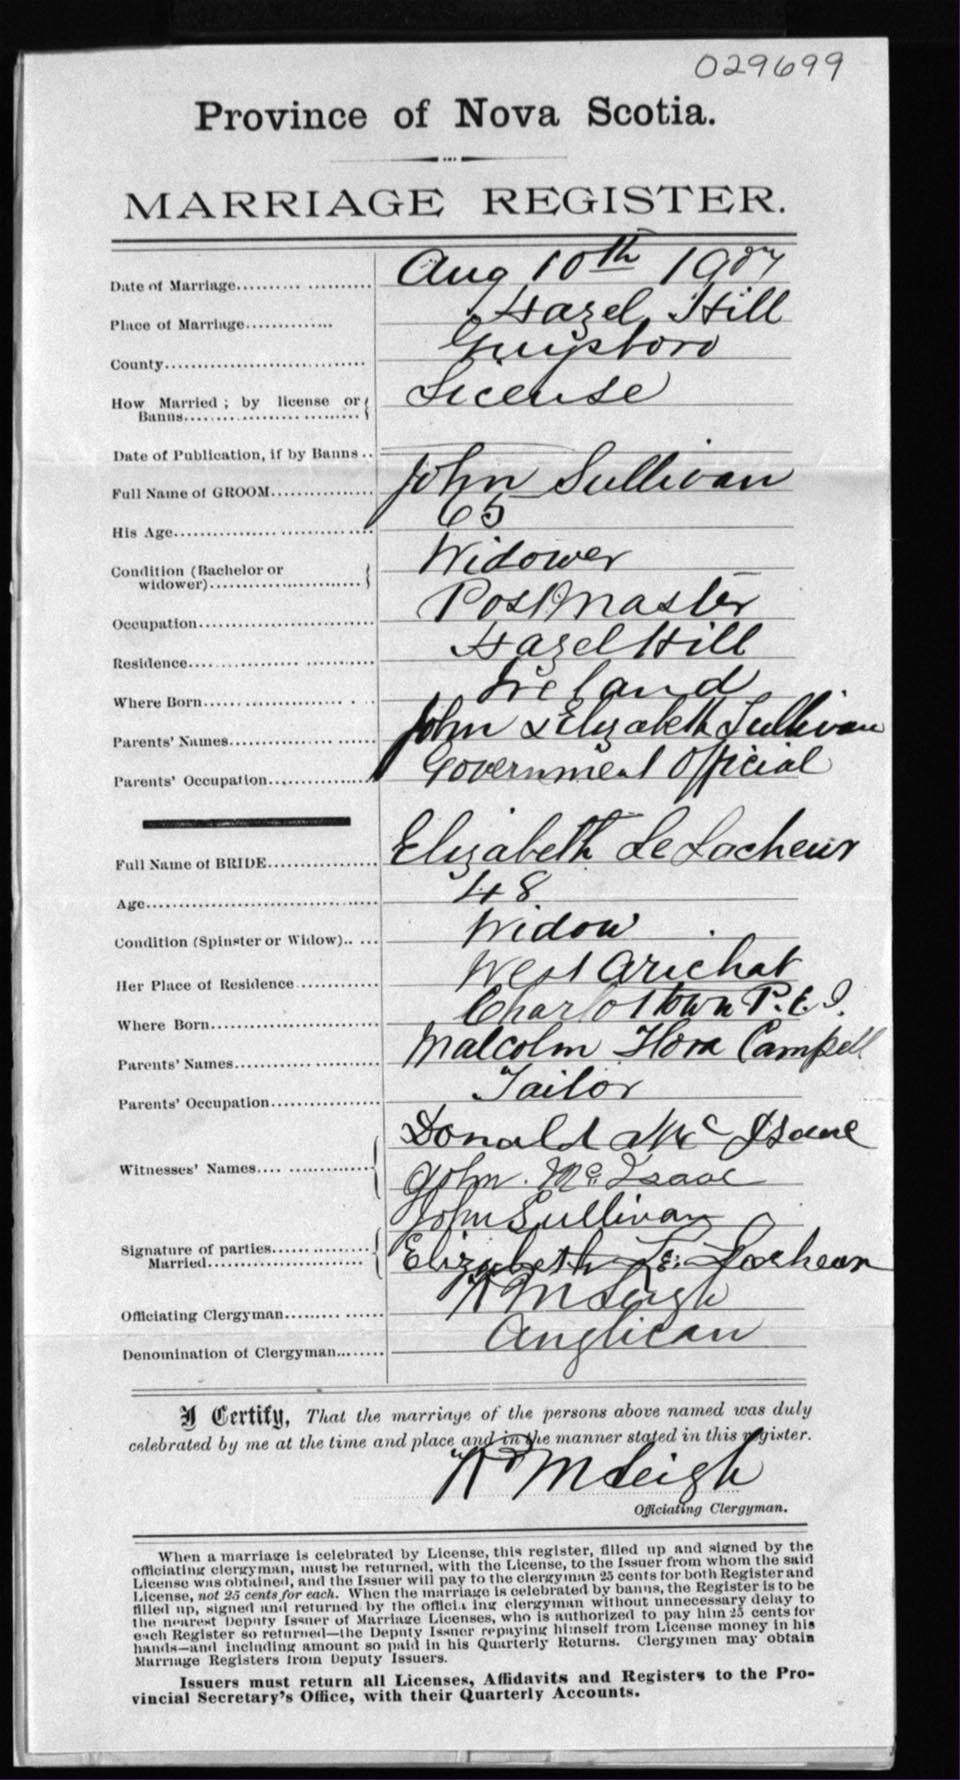 029699
Province of Nova Scotia.
MARRIAGE REGISTER.
Date of Marriage.................. Aug 10th 1907
Place of Marriage............. Hazel Hill
County............................. Guysboro
How Married ; by license or
Banns.................. License
Date of Publication, if by Banns ..
Full Name of GROOM............... John Sullivan
His Age............................. 65
Condition (Bachelor or
widower)...................... Widower
Occupation......................... PostMaster
Residence.......................... Hazel Hill
Where Born...................... Ireland
Parents' Names..................... John & Elizabeth Sullivan
Parents' Occupation............... Government Official
Full Name of BRIDE................ Elizabeth Le Lacheur
Age................................. 48
Condition (Spinster or Widow)..... Widow
Her Place of Residence ............ West Arichat
Where Born......................... Charlottown P.E.I.
Parents' Names..................... Malcolm Flora Campell
Parents' Occupation................ Tailor
Witnesses' Names.... .............. Donald Mc Isaac
John Mc Isaac
Signature of parties............... John Sullivan
Married....................... Elizabeth Le Lacheur
Officiating Clergyman.............. Leigh
Denomination of Clergyman........ Anglican
I Certify, That the marriage of the persons above named was duly
celebrated by me at the time and place and in the manner stated in this register.
Leigh
Officiating Clergyman.
When a marriage is celebrated by License, this register, filled up and signed by the
officiating clergyman, must be returned, with the License, to the Issuer from whom the said
License was obtained, and the Issuer will pay to the clergyman 25 cents for both Register and
License, not 25 cents for each. When the marriage is celebrated by banns, the Register is to be
filled up, signed and returned by the officia ing clergyman without unnecessary delay to
the nearest Deputy Issuer of Marriage Licenses, who is authorized to pay him 25 cents for
each Register so returned—the Deputy Issuer repaying himself from License money in his
hands—and including amount so paid in his Quarterly Returns. Clergymen may obtain
Marriage Registers from Deputy Issuers.
Issuers must return all Licenses, Affidavits and Registers to the Pro-
vincial Secretary's Office, with their Quarterly Accounts.